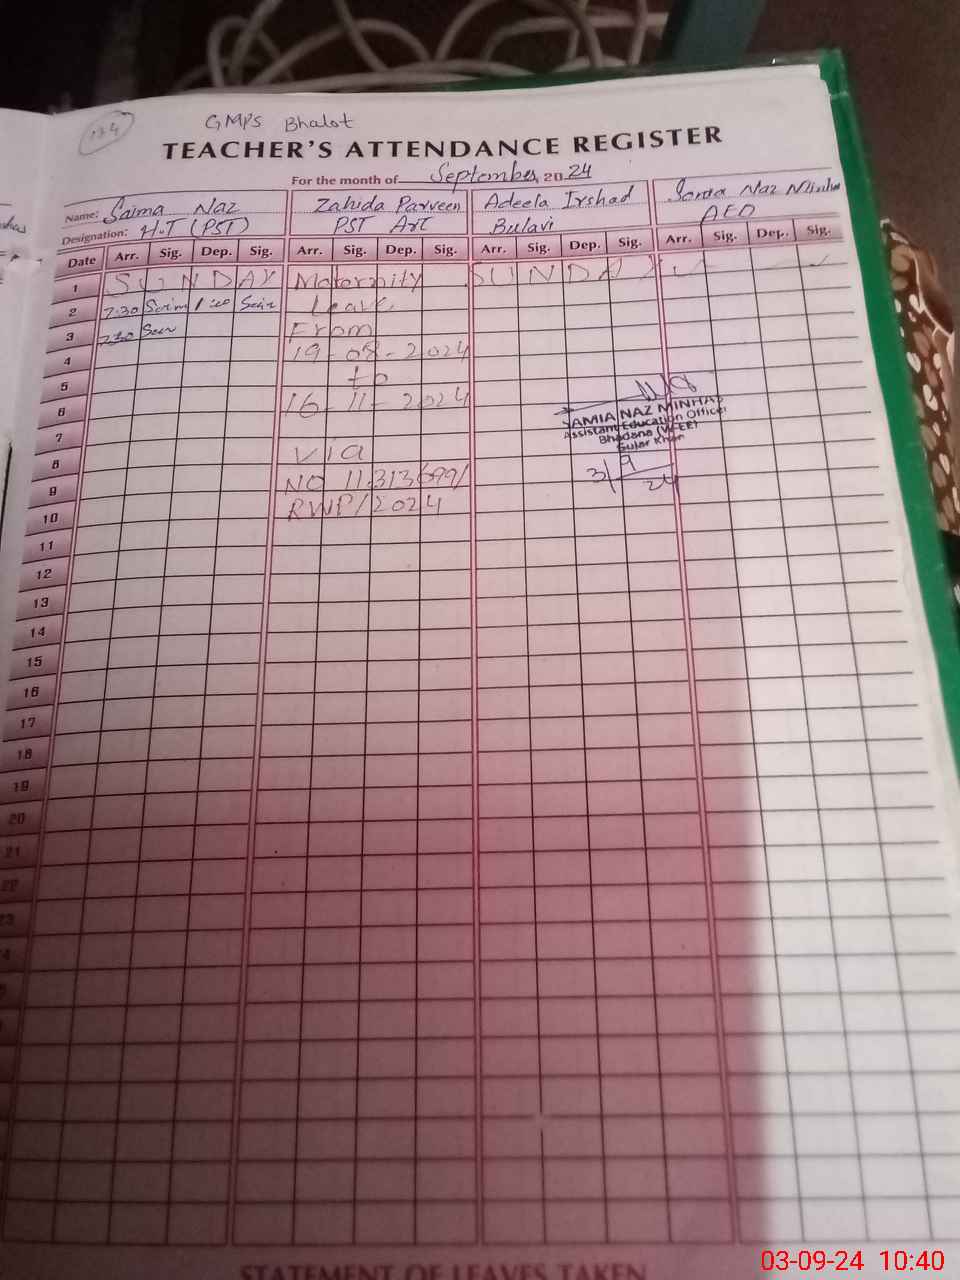 134
GMPS Bhalot
TEACHER'S ATTENDANCE REGISTER
For the month of September, 2024
Name: Saima Naz Zahida Parveen Adeela Irshad Naz Minhas
Designation: H.T (PST) PST Art Bulavi AEO
Date Arr. Sig. Dep. Sig. Arr. Sig. Dep. Sig. Arr. Sig. Dep. Sig. Arr. Sig. Dep. Sig.
1 SUNDAY Maternity SUNDAY
2 7:30 Saim 1:00 Leave
3 7:30 From
4 19-08-2024
5 to
6 16-11-2024
7
8 Via
9 NO 11.313699/
10 RWP/2024
SAMIA NAZ MINHAS
Assistant Education Officer
Bhadana (W-EE)
Gujar Khan
3/9/24
11
12
13
14
15
16
17
18
19
20
21
22
23
STATEMENT OF LEAVES TAKEN
03-09-24 10:40